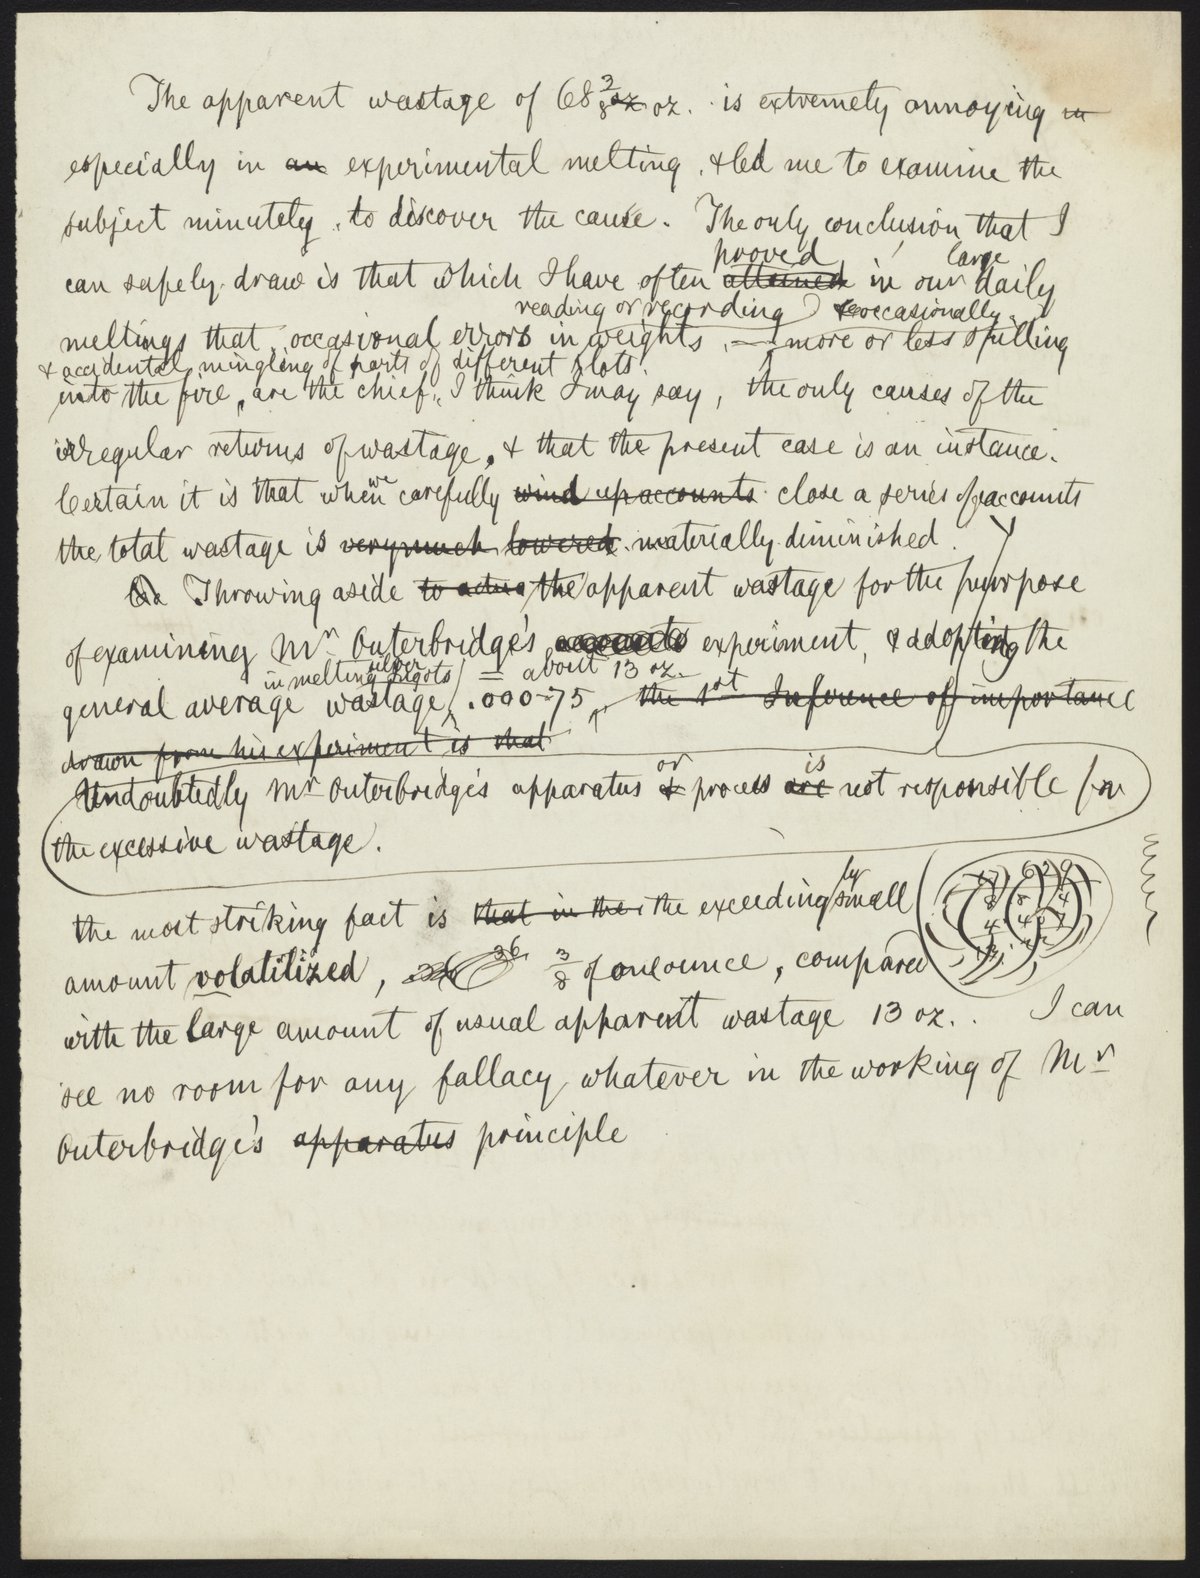 The apparent wastage of 68 3/8 oz oz. is extremely annoying in
especially in an experimental melting, & led me to examine the
subject minutely, to discover the cause. The only conclusion that I
proved large
can safely draw is that which I have often attained in our daily
reading or recording & occasionally
meltings that, occasional errors in weights, more or less spilling
& accidental mingling of parts of different lots
into the fire, are the chief, I think I may say, the only causes of the
irregular returns of wastage, & that the present case is an instance.
we
Certain it is that when carefully wind up accounts close a series of accounts
the total wastage is very much lowered materially diminished.
Throwing aside to actua the apparent wastage for the purpose
of examining Mr Outerbridge's accounts experiment, & adopting the
in melting silver Ingots = about 13 oz.
general average wastage .000-75, the 1st Inference of importance
drawn from his experiment is that
or is
Undoubtedly Mr Outerbridge's apparatus & process are not responsible for
the excessive wastage.
ly
the most striking fact is that in the the exceeding small
36
amount volatilized, 3/8 of one ounce, compared
with the large amount of usual apparent wastage 13 oz.. I can
see no room for any fallacy whatever in the working of Mr
Outerbridge's apparatus principle